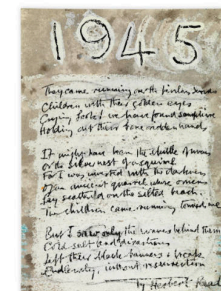 1945
They came running over the perilous sands
Children with their golden eyes
Crying Look! we have found samphire
Holding out their bone-ridden hands
It might have been the spittle of wrens
or the silver nest of a squirrel
For I was invested with the darkness
of an ancient quarrel whose omens
lay scattered on the silted beach
The children came running toward me
But I saw only the waves behind them
Cold salt and disastrous
lift their black banners & break
Endlessly, without resurrection
by Herbert Read